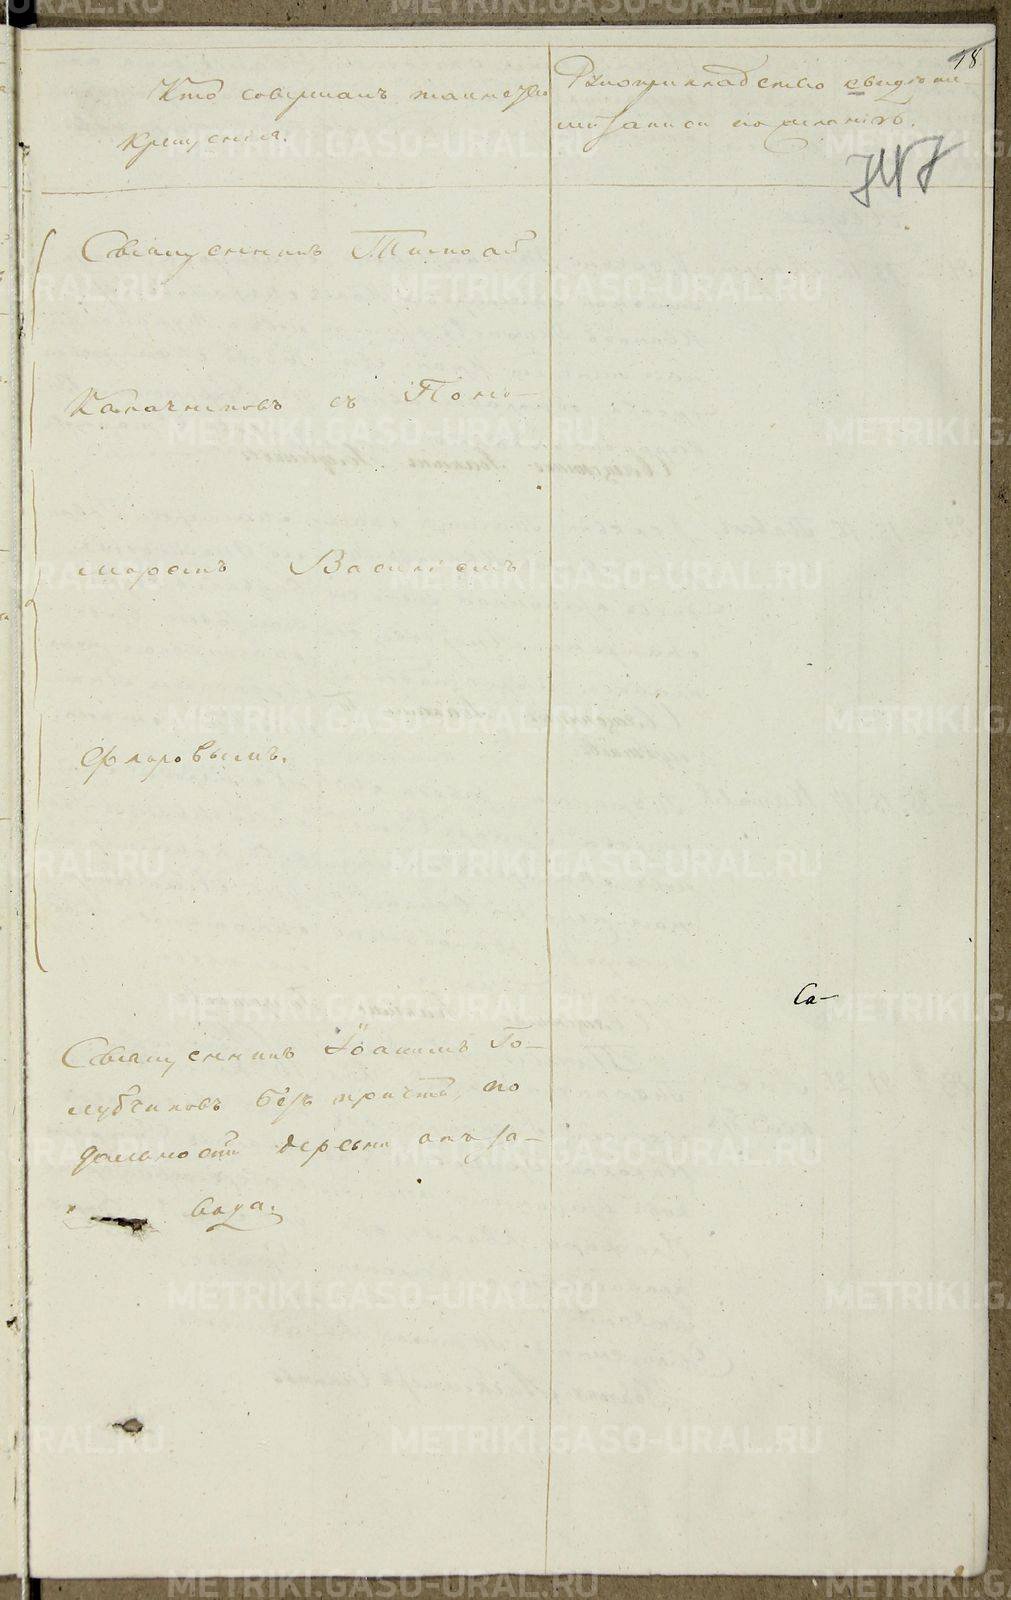 18
Кто совершалъ таинство
крещенія.
Рукоприкладство свидѣте
лей записи по желанію.
747
Священникъ Тимоѳей
Калачниковъ съ Поно-
маремъ Василіемъ
Флоровымъ.
Са-
Священникъ Іоакимъ Го-
лубчиковъ безъ причта, по
дальности деревни отъ за-
вода.
METRIKI.GASO-URAL.RU